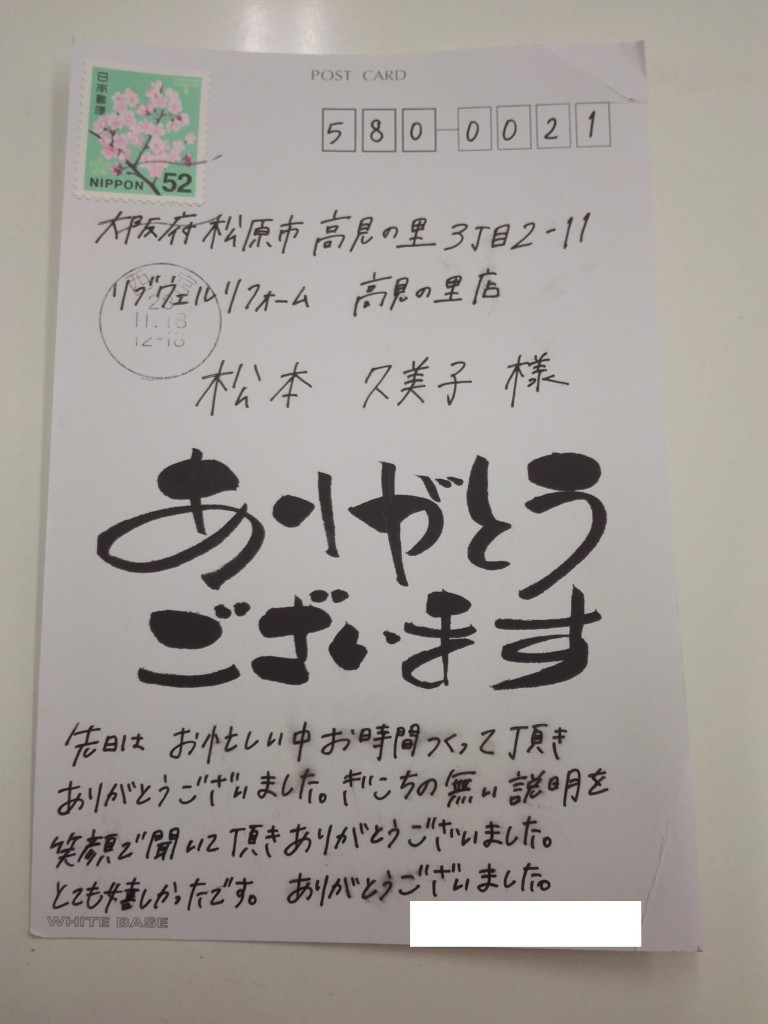 POST CARD
日本郵便
NIPPON 52
580-0021
大阪府松原市高見の里3丁目2-11
リブウェルリフォーム 高見の里店
28
11.18
12-18
松本 久美子 様
ありがとう
ございます
先日は お忙しい中お時間つくって頂き
ありがとうございました。ぎこちの無い説明を
笑顔で聞いて頂きありがとうございました。
とても嬉しかったです。 ありがとうございました。
WHITE BASE